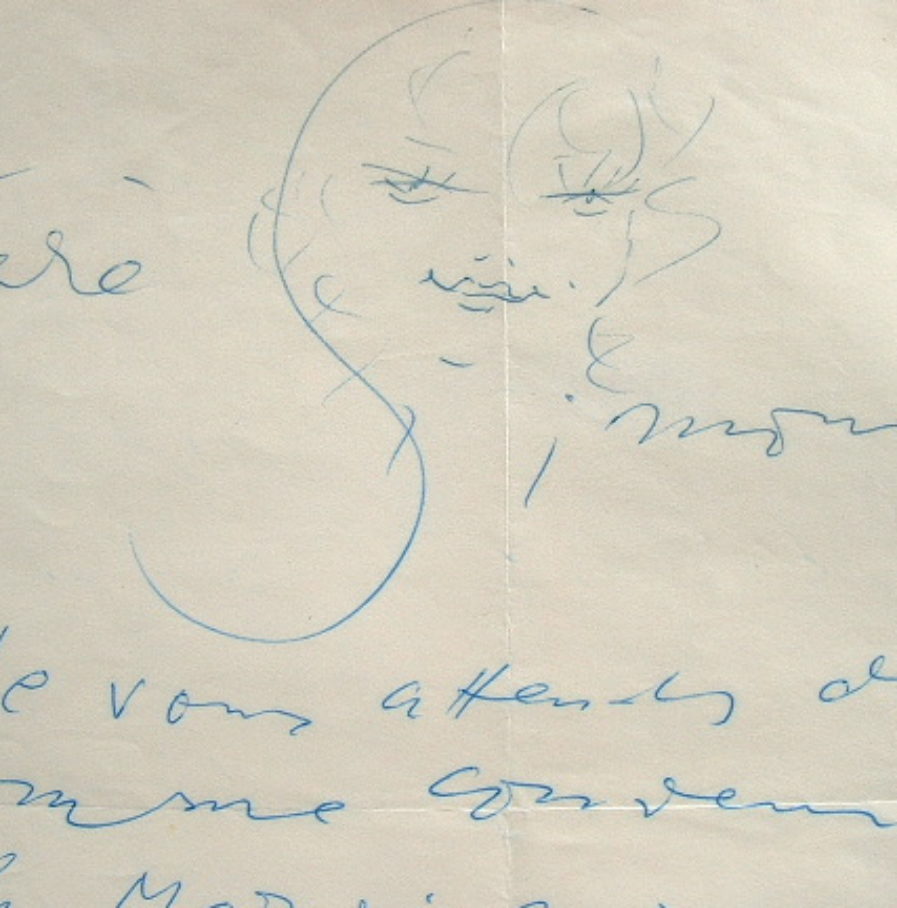 ère Simon
e vous attends d
mme conven